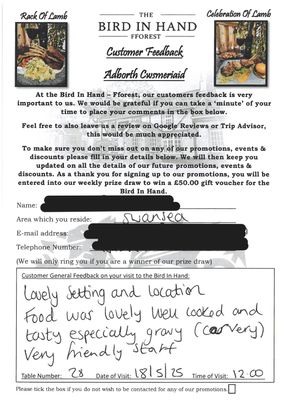 Rack Of Lamb
Celebration Of Lamb
THE
BIRD IN HAND
FFOREST
Customer Feedback
Adborth Cwsmeriaid
At the Bird In Hand – Fforest, our customers feedback is very
important to us. We would be grateful if you can take a 'minute' of your
time to place your comments in the box below.
Feel free to also leave us a review on Google Reviews or Trip Advisor,
this would be much appreciated.
To make sure you don't miss out on any of our promotions, events &
discounts please fill in your details below. We will then keep you
updated on all the details of our future promotions, events &
discounts. As a thank you for signing up to our promotions, you will be
entered into our weekly prize draw to win a £50.00 gift voucher for the
Bird In Hand.
Name:
Area which you reside: Swansea
E-mail address:
Telephone Number:
(We will only ring if you are a winner of our prize draw)
Customer General Feedback on your visit to the Bird In Hand:
Lovely setting and location
Food was lovely well cooked and
tasty especially gravy (Carvery)
Very friendly staff
Table Number: 28 Date of Visit: 18/5/25 Time of Visit: 12.00
Please tick the box if you do not wish to be contacted for any of our promotions.